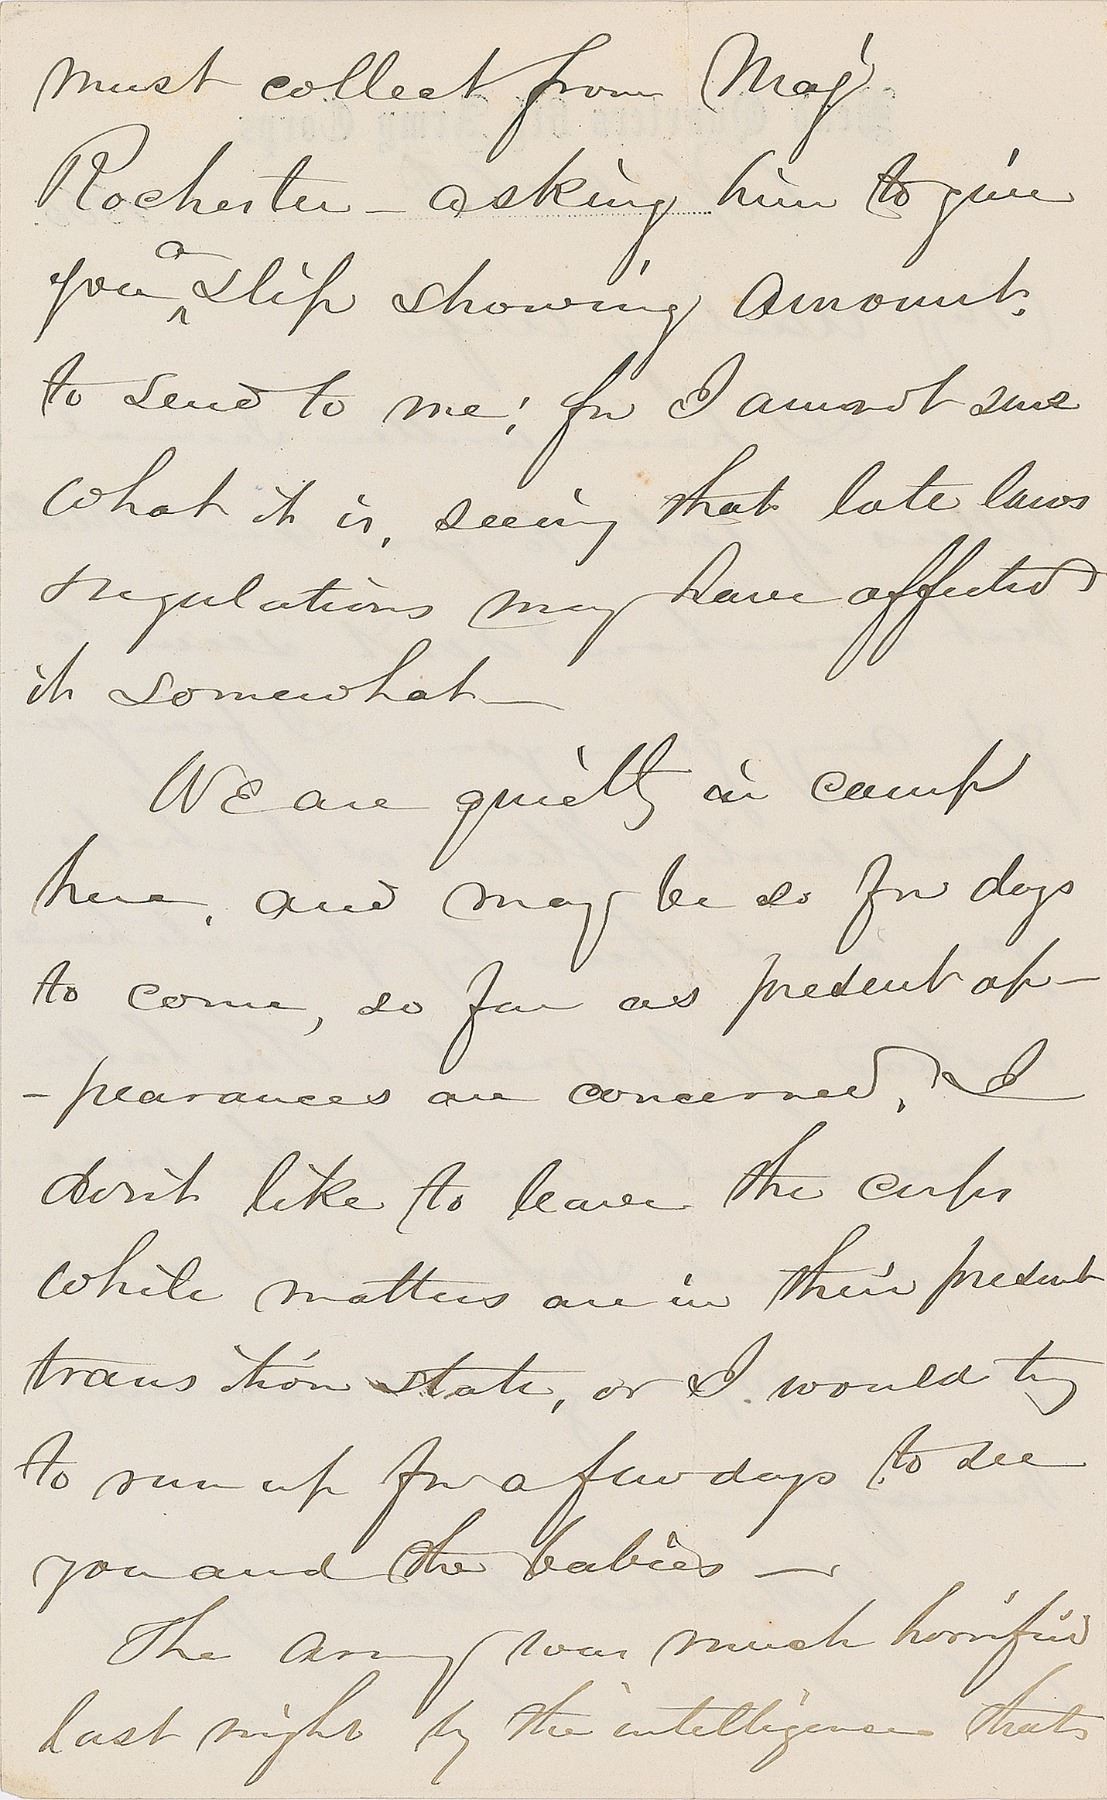 must collect from Maj'
Rochester – asking him to give
you a slip showing amount.
to send to me; for I am not sure
what it is, seeing that late laws
regulations may have affected
it somewhat —
We are quietly in camp
here, and may be so for days
to come, so far as present ap-
-pearances are concerned. I
don't like to leave the corps
while matters are in their present
transition state, or I would try
to run up for a few days to see
you and the babies —
The army was much horrified
last night by the intelligence that